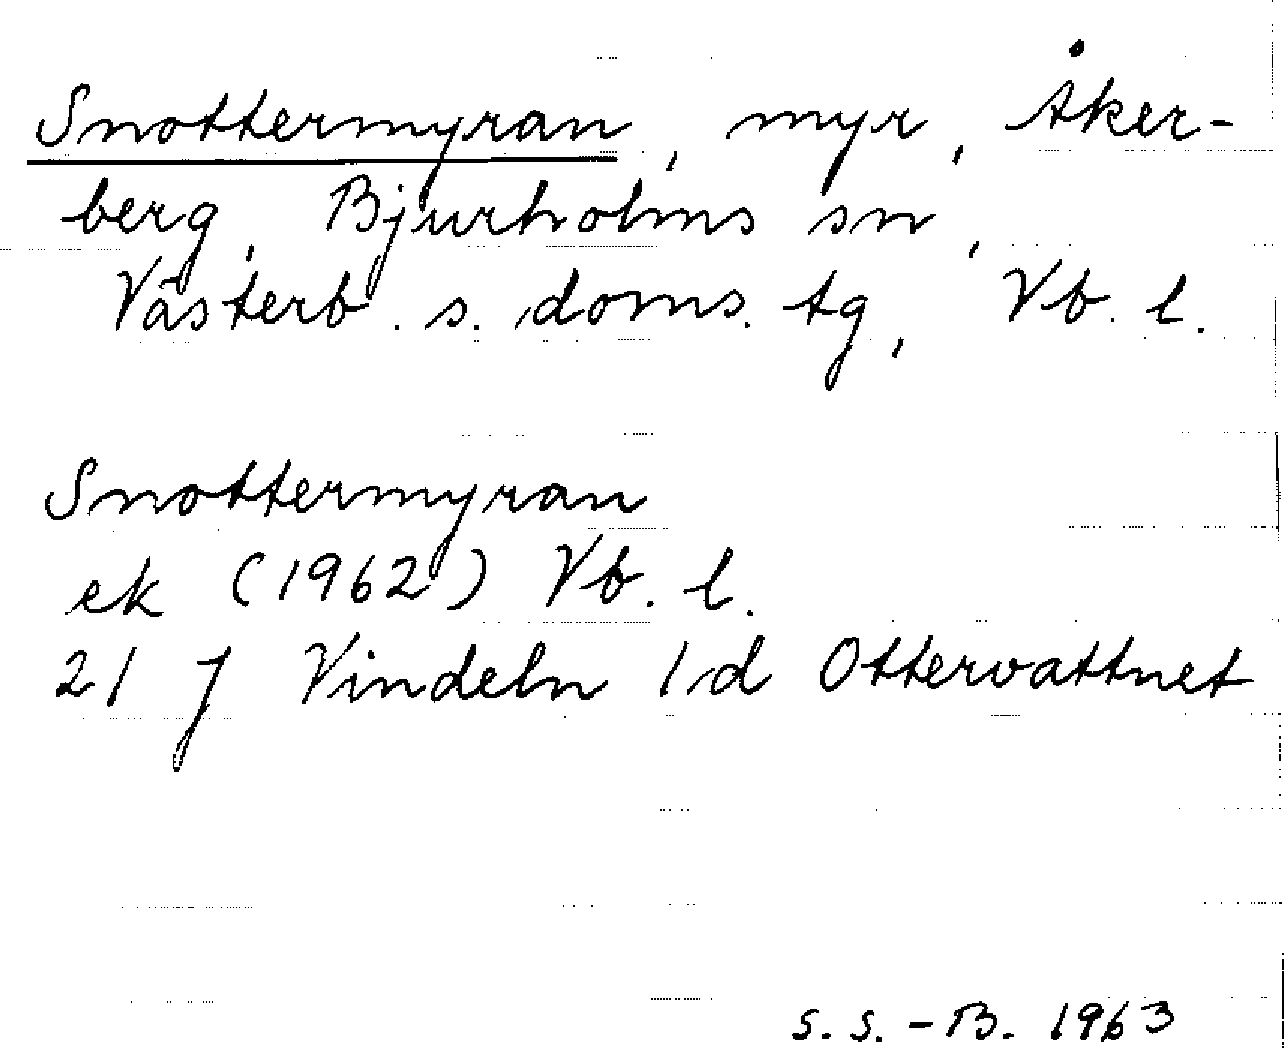 Snottermyran, myr, Åker-
berg, Bjurholms sn,
Västerb. s. doms. tg, Vb. l.
Snottermyran
ek (1962) Vb. l.
21 J Vindeln 1d Ottervattnet
S. S. -B. 1963